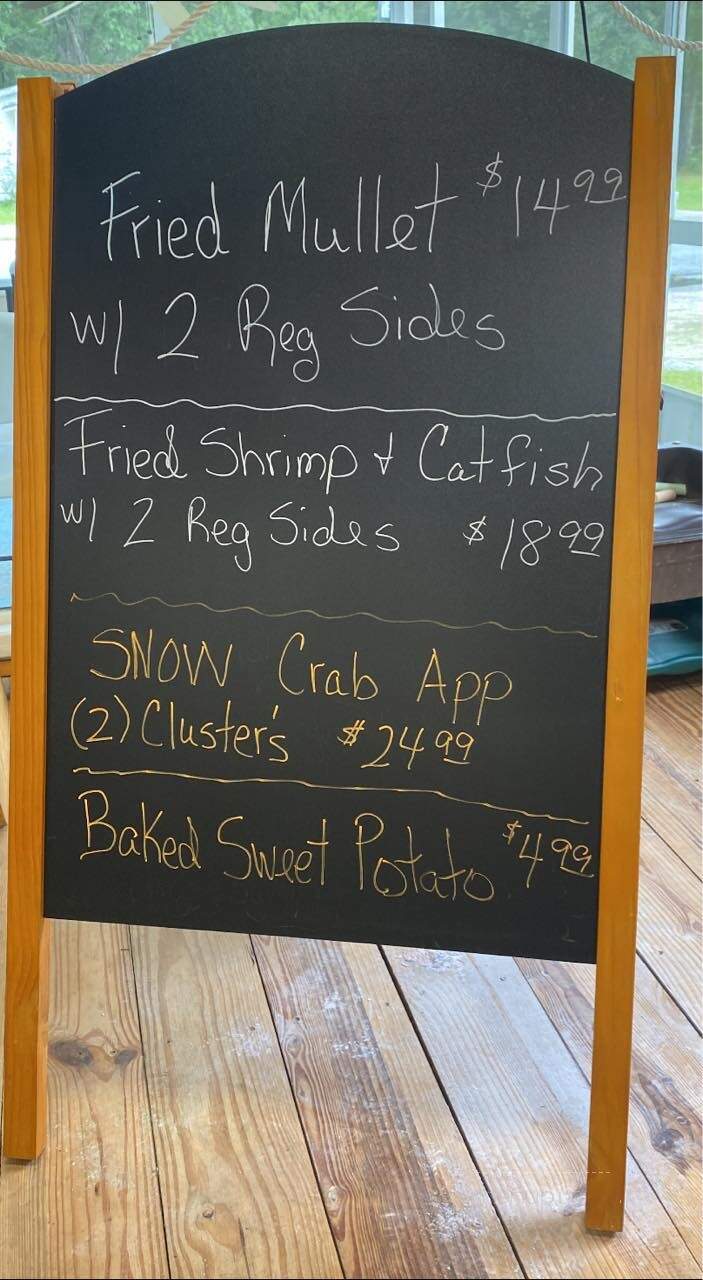 Fried Mullet $14.99
w/ 2 Reg Sides
Fried Shrimp & Catfish
w/ 2 Reg Sides $18.99
SNOW Crab App
(2) Cluster's $24.99
Baked Sweet Potato $4.99